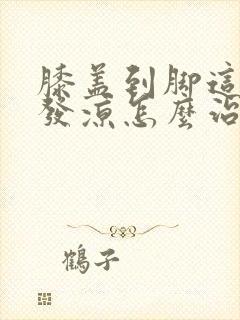 膝盖到脚這
發涼怎麼治
鶴子